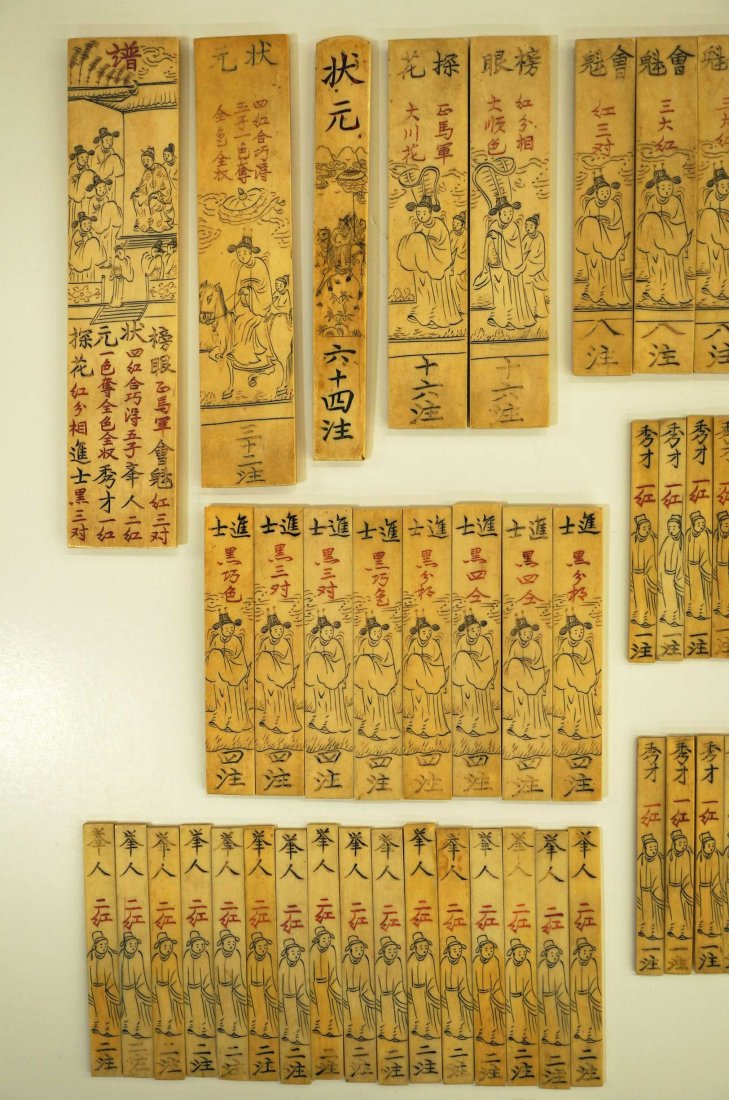 譜
榜眼 正馬軍 會魁 紅三对
状元 四紅合巧淂五子 舉人 二紅
一色奪全色全收 秀才 一紅
探花 紅分相 進士 黑三对
状元
四紅合巧淂
五子一色奪
全色全收
三十二注
状元
六十四注
探花
正馬軍
大川花
十六注
榜眼
紅分相
大順色
十六注
會魁
紅三对
八注
會魁
三大紅
八注
魁
三大紅
八注
秀才 一紅 一注
秀才 一紅 一注
秀才 一紅 一注
秀才 一紅 一注
進士 黑巧色 四注
進士 黑三对 四注
進士 黑三对 四注
進士 黑巧色 四注
進士 黑分相 四注
進士 黑四仝 四注
進士 黑四仝 四注
進士 黑分相 四注
秀才 一紅 一注
秀才 一紅 一注
秀才 一紅 一注
舉人 二紅 二注
舉人 二紅 二注
舉人 二紅 二注
舉人 二紅 二注
舉人 二紅 二注
舉人 二紅 二注
舉人 二紅 二注
舉人 二紅 二注
舉人 二紅 二注
舉人 二紅 二注
舉人 二紅 二注
舉人 二紅 二注
舉人 二紅 二注
舉人 二紅 二注
舉人 二紅 二注
舉人 二紅 二注